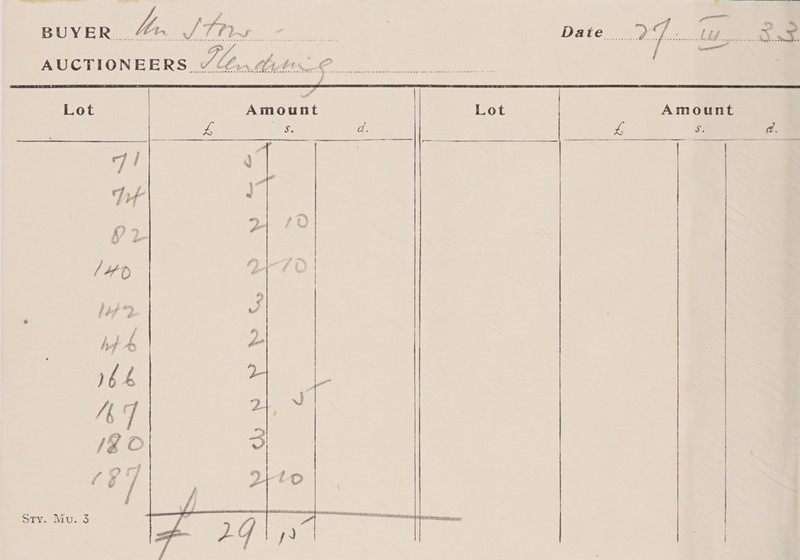 BUYER Mr Stow -
Date 27. III 33
AUCTIONEERS Glendining
Lot Amount Lot Amount
£ s. d. £ s. d.
71 5
74 5
82 2 10
140 2-10
142 3
146 2
166 2
167 2 5
180 3
187 2-10
£ 29 15
STY. MU. 3